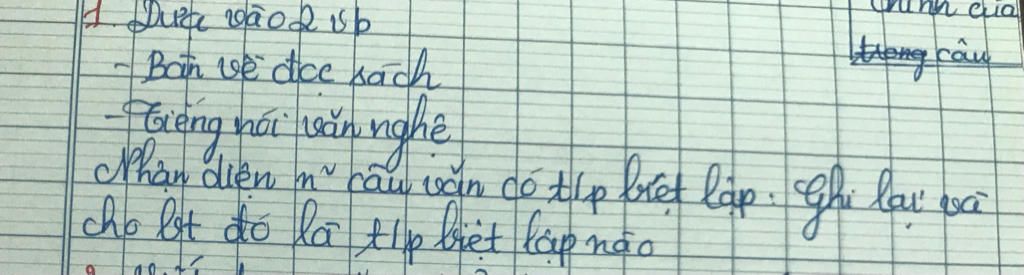 1. Dựa vào 2 vb
chính của
- Bàn về đọc sách
trong câu
- Tiếng nói văn nghệ
Nhận diện n~ câu văn có t/p biệt lập. Ghi lại và
cho bt đó là t/p biệt lập nào